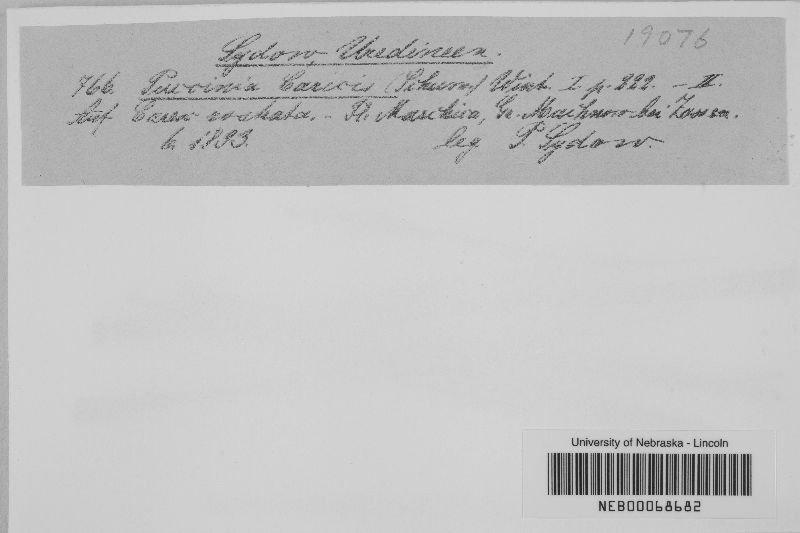 19076
Sydow, Uredineen.
766. Puccinia Caricis (Schum.) Wint. I p. 222. – II.
Auf Carex – Kl. Machnow bei Zossen.
6. 1893. leg P. Sydow.
University of Nebraska - Lincoln
NEB00068682